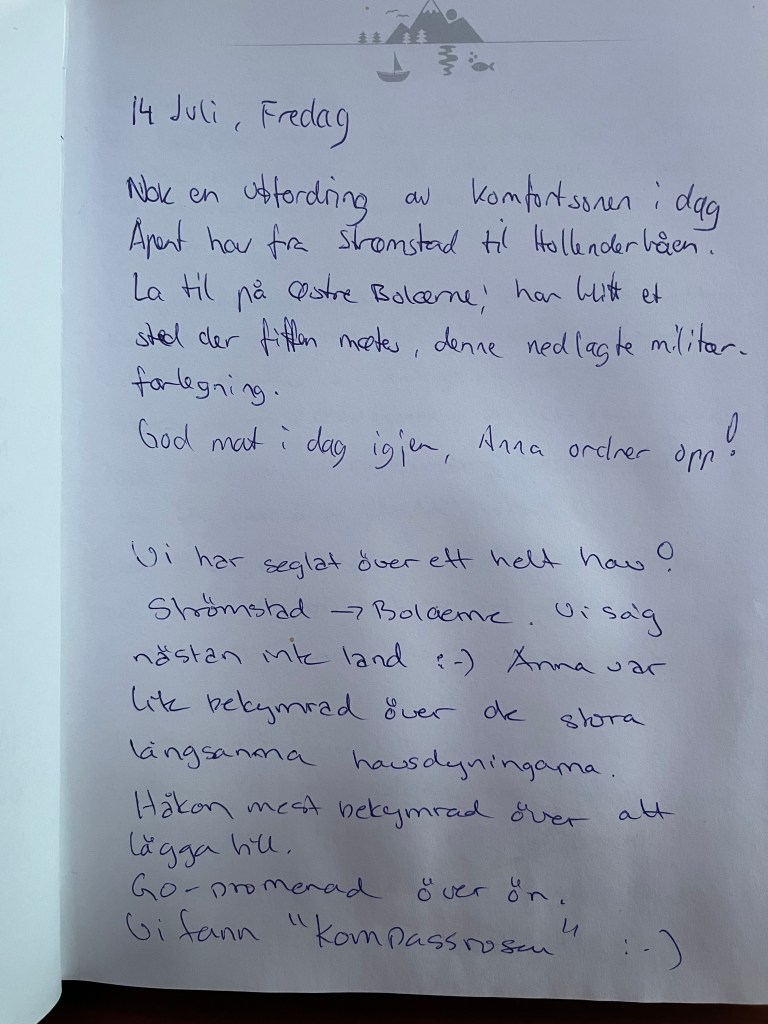 14 Juli, Fredag
Nok en utfordring av komfortsonen i dag
Åpent hav fra Strømstad til Hollenderbåen.
La til på Østre Bolærne; har blitt et
sted der fiffen møtes, denne nedlagte militær-
forlegning.
God mat i dag igjen, Anna ordner opp!
Vi har seglat över ett helt hav!
Strömstad → Bolaerne. Vi såg
nästan inte land :-) Anna var
lite bekymrad över de stora
långsamma havsdyningarna.
Håkon mest bekymrad över att
lägga till.
Go-promenad över ön.
Vi fann "Kompassrosen" :-)